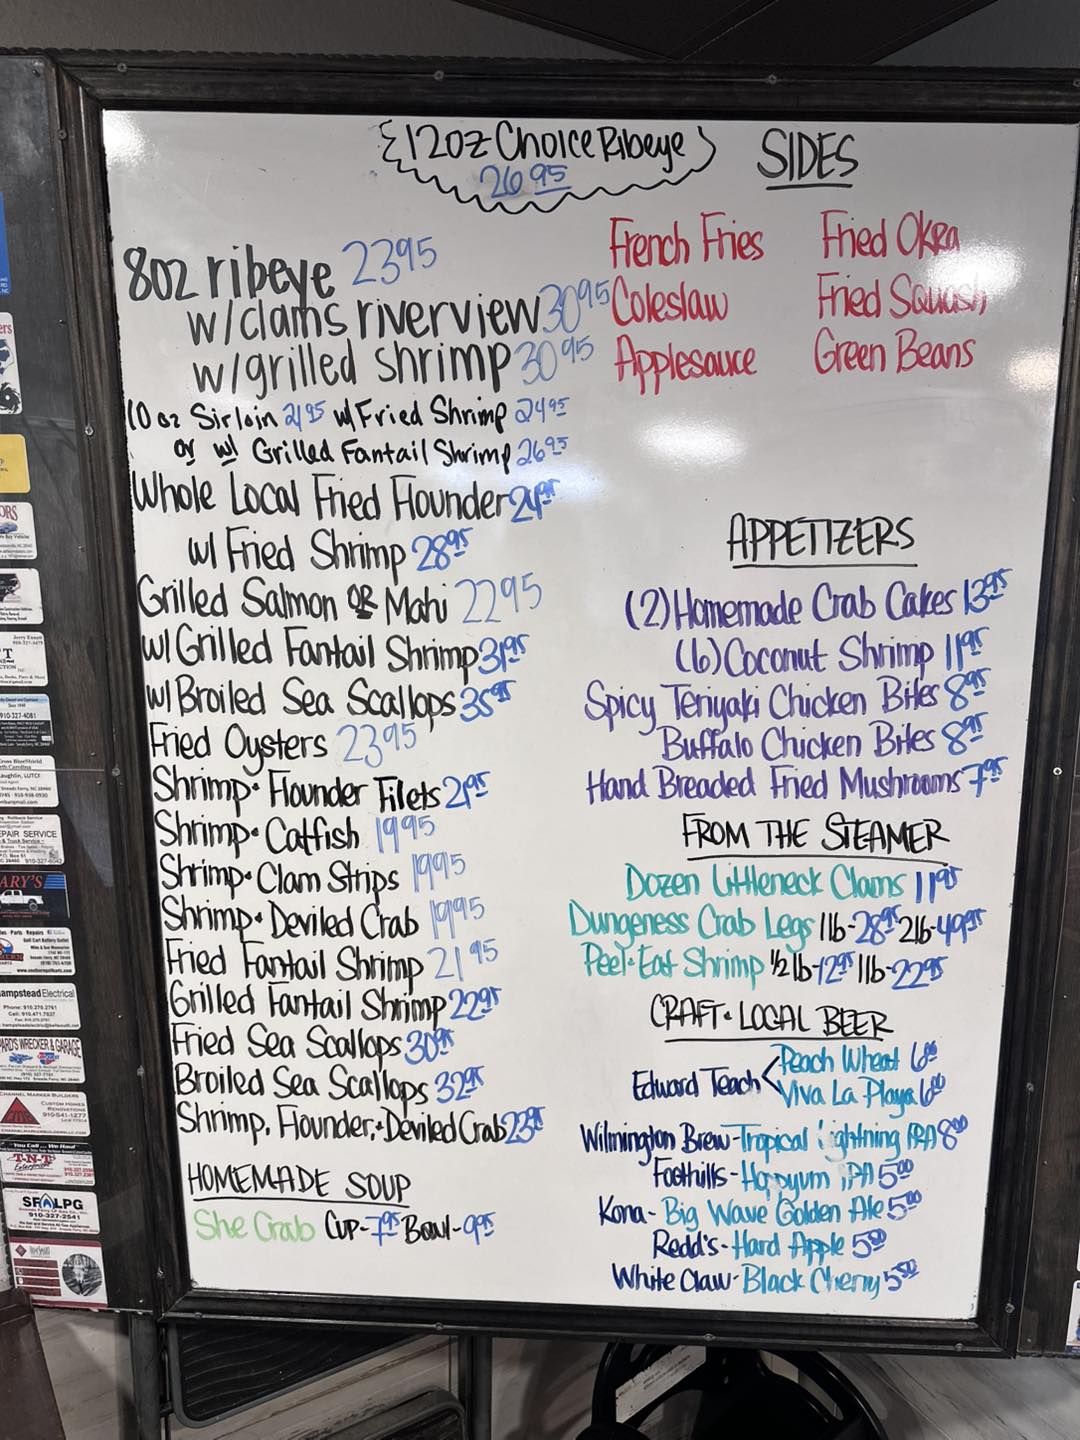 12oz Choice Ribeye
26 95
8oz ribeye 23 95
w/clams riverview 30 95
w/grilled shrimp 30 95
10 oz Sirloin 21 95 w/ Fried Shrimp 24 95
or w/ Grilled Fantail Shrimp 26 95
Whole Local Fried Flounder 24 95
w/ Fried Shrimp 28 95
Grilled Salmon OR Mahi 22 95
w/ Grilled Fantail Shrimp 31 95
w/ Broiled Sea Scallops 35 95
Fried Oysters 23 95
Shrimp + Flounder Filets 21 95
Shrimp + Catfish 19 95
Shrimp + Clam Strips 19 95
Shrimp + Deviled Crab 19 95
Fried Fantail Shrimp 21 95
Grilled Fantail Shrimp 22 95
Fried Sea Scallops 30 95
Broiled Sea Scallops 32 95
Shrimp, Flounder, + Deviled Crab 23 95
HOMEMADE SOUP
She Crab Cup-7 95 Bowl-9 95
SIDES
French Fries Fried Okra
Coleslaw Fried Squash
Applesauce Green Beans
APPETIZERS
(2) Homemade Crab Cakes 13 95
(6) Coconut Shrimp 11 95
Spicy Teriyaki Chicken Bites 8 95
Buffalo Chicken Bites 8 95
Hand Breaded Fried Mushrooms 7 95
FROM THE STEAMER
Dozen Littleneck Clams 11 95
Dungeness Crab Legs 1lb-28 95 2lb-49 95
Peel+Eat Shrimp ½ lb-12 95 1lb-22 95
CRAFT + LOCAL BEER
Edward Teach < Peach Wheat 6 00
Viva La Playa 6 00
Wilmington Brew-Tropical Lightning IPA 8 00
Foothills-Hoppyum IPA 5 00
Kona-Big Wave Golden Ale 5 00
Redd's-Hard Apple 5 00
White Claw-Black Cherry 5 50
REPAIR SERVICE
GARY'S
Hampstead Electrical
WRECKER & GARAGE
CHANNEL MARKER BUILDERS
CUSTOM HOMES
RENOVATIONS
910-541-1277
You Call ... We Haul
T-N-T
SFALPG
910-327-2541